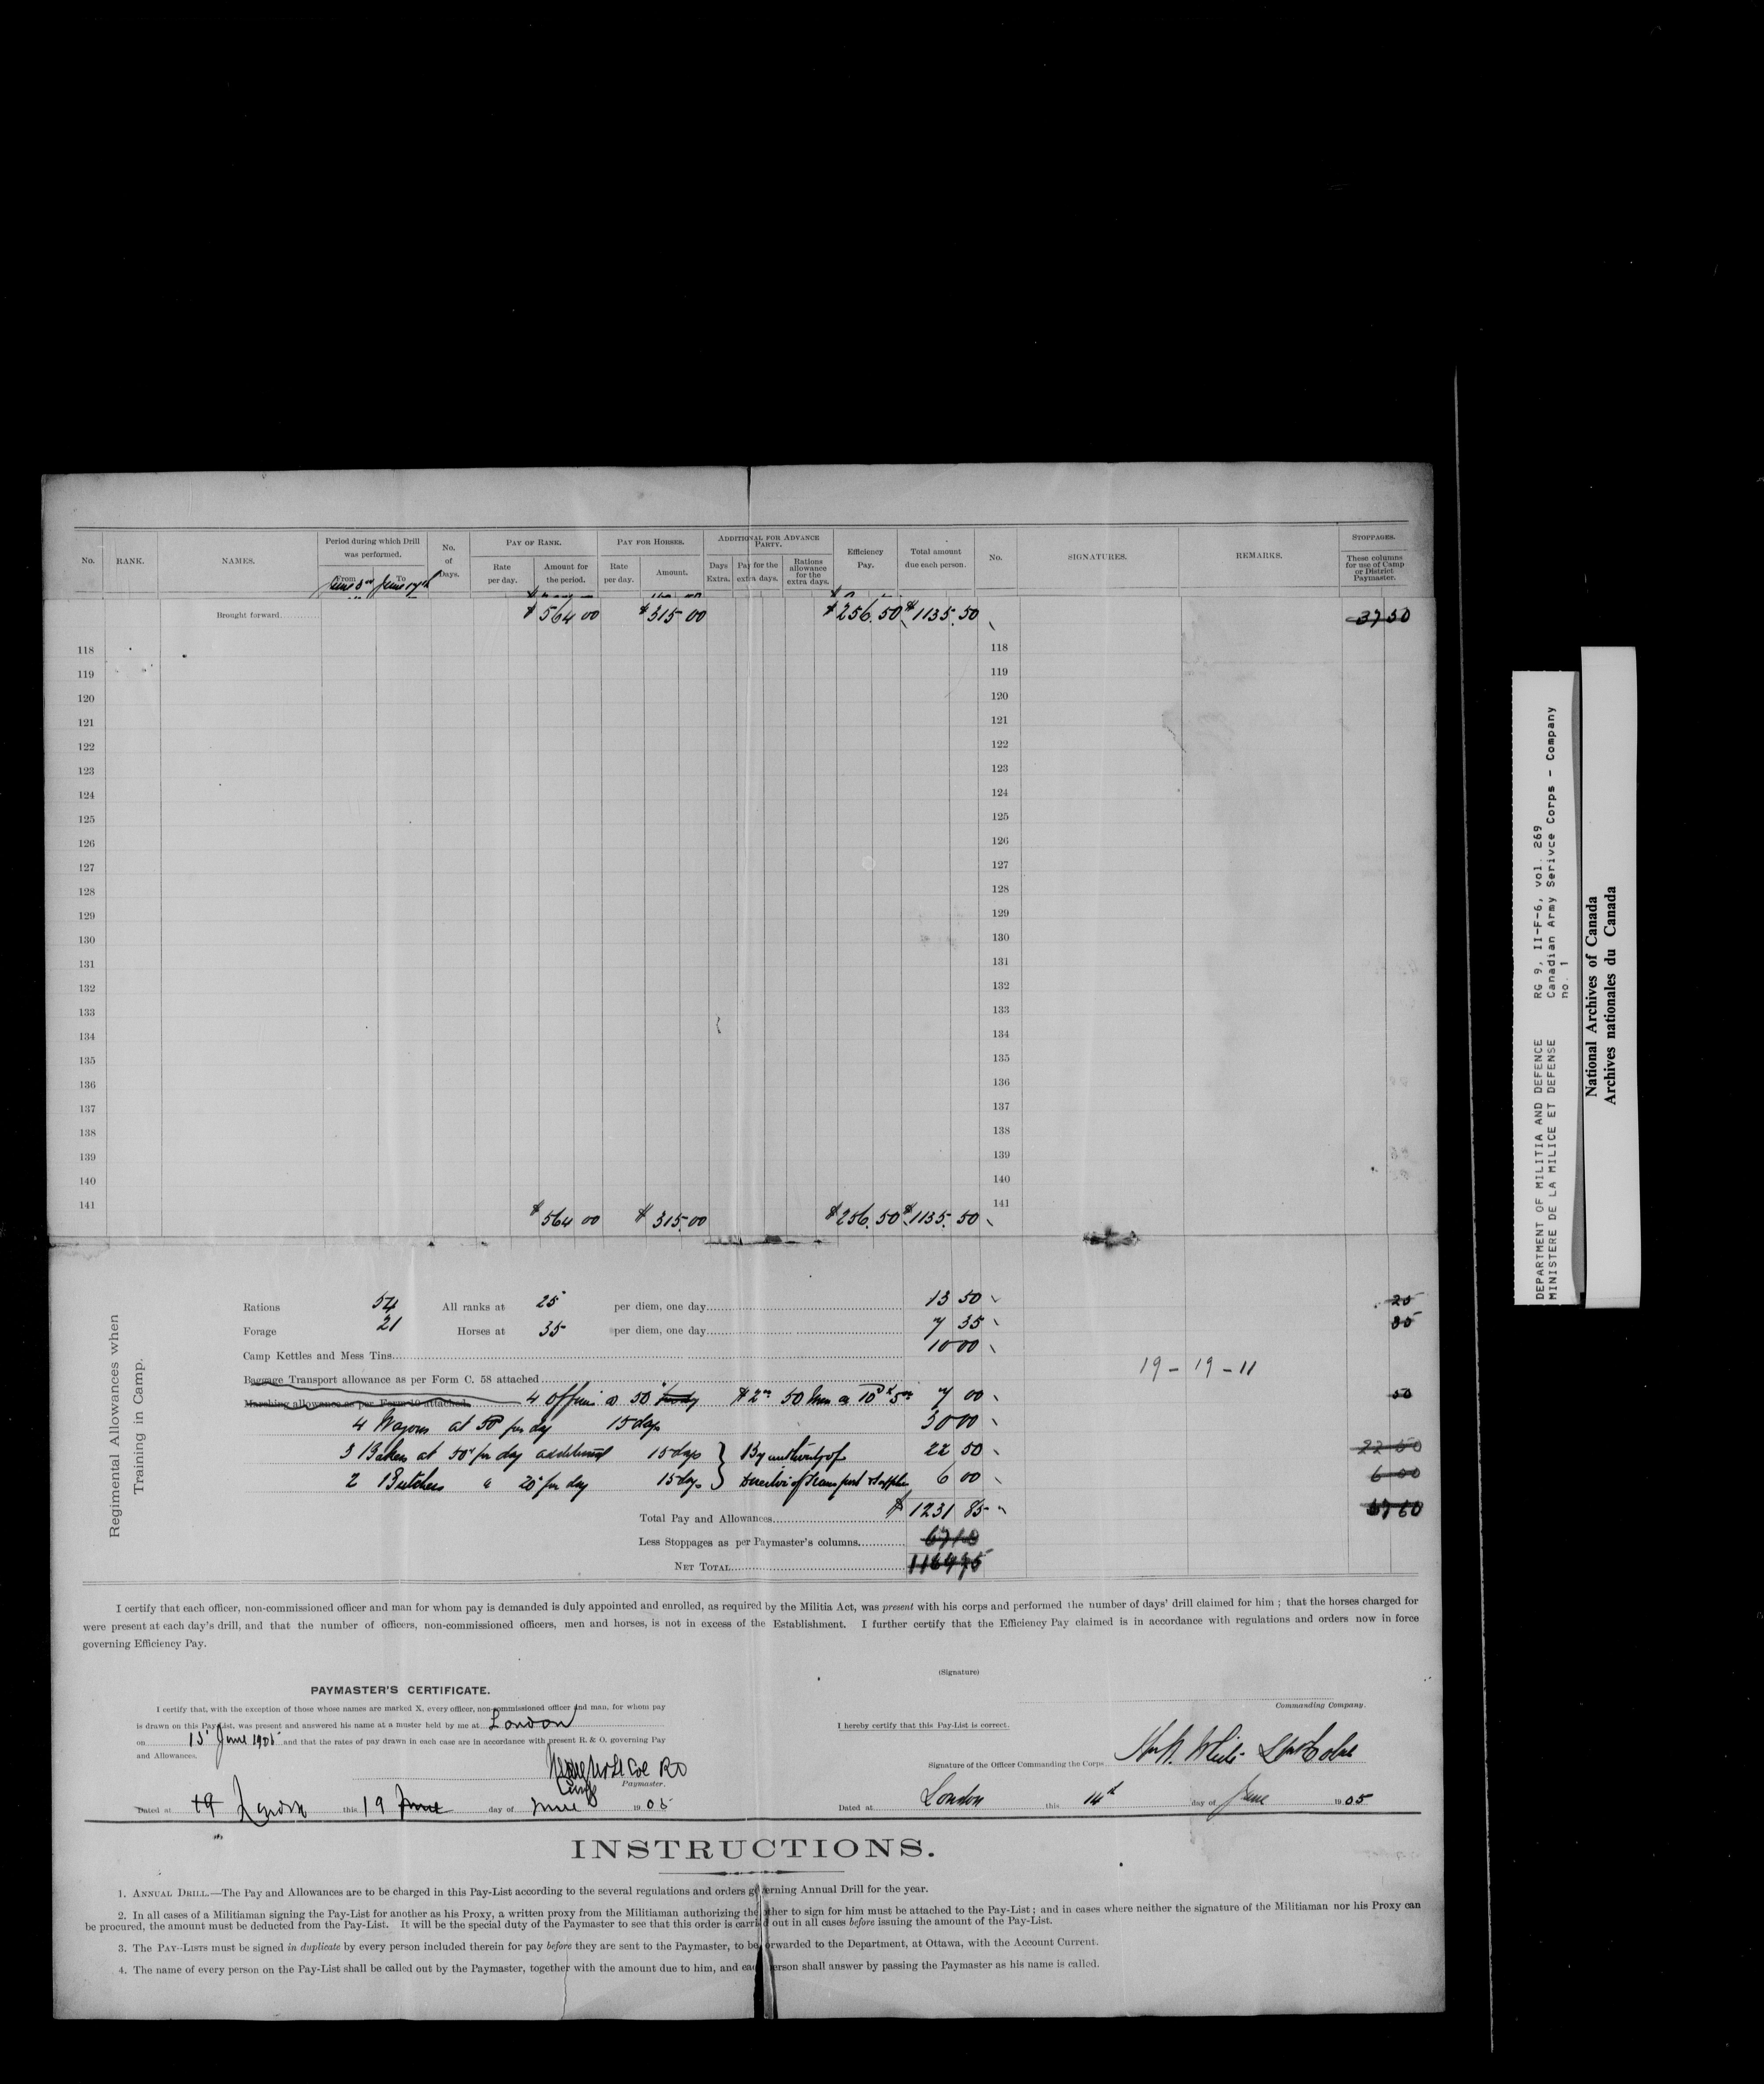 No. RANK. NAMES. Period during which Drill was performed. From To No. of Days. PAY OF RANK. Rate per day. Amount for the period. PAY FOR HORSES. Rate per day. Amount. ADDITIONAL FOR ADVANCE PARTY. Days Extra. Pay for the extra days. Rations allowance for the extra days. Efficiency Pay. Total amount due each person. No. SIGNATURES. REMARKS. STOPPAGES. These columns for use of Camp or District Paymaster.
Brought forward $564 00 $315 00 $256.50 $1135.50 37 50
118 118
119 119
120 120
121 121
122 122
123 123
124 124
125 125
126 126
127 127
128 128
129 129
130 130
131 131
132 132
133 133
134 134
135 135
136 136
137 137
138 138
139 139
140 140
141 141
$564 00 $315.00 $256.50 $1135.50
Regimental Allowances when Training in Camp.
Rations 54 All ranks at 25 per diem, one day 13 50 25
Forage 21 Horses at 35 per diem, one day 7 35 35
Camp Kettles and Mess Tins 10 00
19-19-11
Baggage Transport allowance as per Form C. 58 attached
Marching allowance as per Form 10 attached. 4 Officers @ 50 $2 50 Men @ 10 $5 7 00 50
4 Wagons at 50 per day 15 days 30 00
3 Bakers at 50 per day additional 15 days By authority of 22 50 22 50
2 Butchers " 20 per day 15 days Director of Transport & Supplies 6 00 6 00
Total Pay and Allowances $1231 85 67 60
Less Stoppages as per Paymaster's columns 67 10
NET TOTAL 1164 75
I certify that each officer, non-commissioned officer and man for whom pay is demanded is duly appointed and enrolled, as required by the Militia Act, was present with his corps and performed the number of days' drill claimed for him ; that the horses charged for
were present at each day's drill, and that the number of officers, non-commissioned officers, men and horses, is not in excess of the Establishment. I further certify that the Efficiency Pay claimed is in accordance with regulations and orders now in force
governing Efficiency Pay.
(Signature)
Commanding Company.
PAYMASTER'S CERTIFICATE.
I certify that, with the exception of those whose names are marked X, every officer, non-commissioned officer and man, for whom pay
is drawn on this Pay List, was present and answered his name at a muster held by me at London
on 15 June 1905 and that the rates of pay drawn in each case are in accordance with present R. & O. governing Pay
and Allowances.
Paymaster.
Dated at London this 19 June day of June 1905
I hereby certify that this Pay-List is correct.
Signature of the Officer Commanding the Corps
Dated at London this 14th day of June 1905
INSTRUCTIONS.
1. ANNUAL DRILL.—The Pay and Allowances are to be charged in this Pay-List according to the several regulations and orders governing Annual Drill for the year.
2. In all cases of a Militiaman signing the Pay-List for another as his Proxy, a written proxy from the Militiaman authorizing the other to sign for him must be attached to the Pay-List ; and in cases where neither the signature of the Militiaman nor his Proxy can
be procured, the amount must be deducted from the Pay-List. It will be the special duty of the Paymaster to see that this order is carried out in all cases before issuing the amount of the Pay-List.
3. The PAY-LISTS must be signed in duplicate by every person included therein for pay before they are sent to the Paymaster, to be forwarded to the Department, at Ottawa, with the Account Current.
4. The name of every person on the Pay-List shall be called out by the Paymaster, together with the amount due to him, and each person shall answer by passing the Paymaster as his name is called.
DEPARTMENT OF MILITIA AND DEFENCE RG 9, II-F-6, vol. 269
MINISTERE DE LA MILICE ET DEFENSE Canadian Army Serivce Corps - Company
no. 1
National Archives of Canada
Archives nationales du Canada